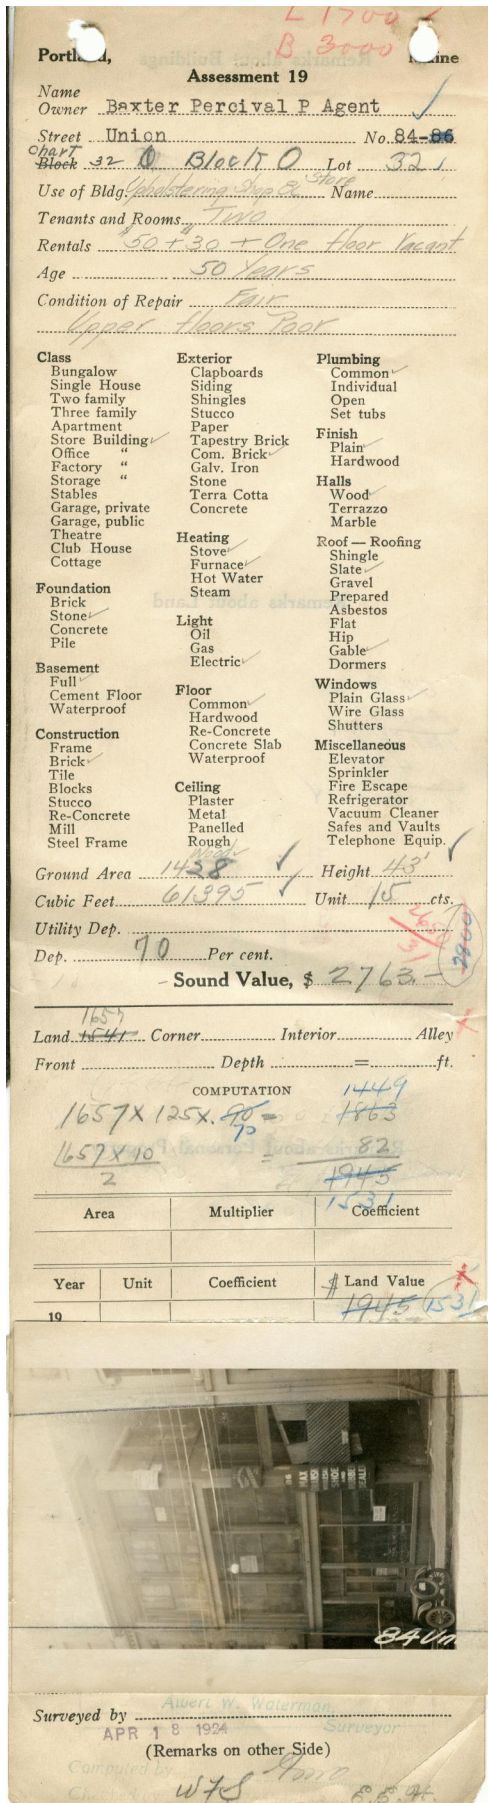 L 1700
B 3000
Portland, Maine
Assessment 19
Name
Owner Baxter Percival P Agent
Street Union No. 84-86
Chart
Block 32 O Block O Lot 32
Use of Bldg. Upholstering Shop & Store Name
Tenants and Rooms Two
Rentals $50 + $30 + One floor Vacant
Age 50 Years
Condition of Repair Fair
Upper floors Poor
Class
Bungalow
Single House
Two family
Three family
Apartment
Store Building ✓
Office "
Factory "
Storage "
Stables
Garage, private
Garage, public
Theatre
Club House
Cottage
Foundation
Brick
Stone ✓
Concrete
Pile
Basement
Full ✓
Cement Floor
Waterproof
Construction
Frame
Brick ✓
Tile
Blocks
Stucco
Re-Concrete
Mill
Steel Frame
Exterior
Clapboards
Siding
Shingles
Stucco
Paper
Tapestry Brick
Com. Brick ✓
Galv. Iron
Stone
Terra Cotta
Concrete
Heating
Stove ✓
Furnace ✓
Hot Water
Steam
Light
Oil
Gas
Electric ✓
Floor
Common ✓
Hardwood
Re-Concrete
Concrete Slab
Waterproof
Ceiling
Plaster
Metal
Panelled
Rough
Wood ✓
Plumbing
Common ✓
Individual
Open
Set tubs
Finish
Plain ✓
Hardwood
Halls
Wood ✓
Terrazzo
Marble
Roof — Roofing
Shingle
Slate ✓
Gravel
Prepared
Asbestos
Flat
Hip
Gable ✓
Dormers
Windows
Plain Glass ✓
Wire Glass
Shutters
Miscellaneous
Elevator
Sprinkler
Fire Escape
Refrigerator
Vacuum Cleaner
Safes and Vaults
Telephone Equip. ✓
Ground Area 1428 ✓ Height 43'
Cubic Feet 61395 ✓ Unit 15 cts.
Utility Dep.
2800
Dep. 70 Per cent.
Sound Value, $ 2763.-
1657
Land 1541 Corner Interior Alley
Front Depth = ft.
COMPUTATION
1449
1657 X 125 X .90 = 1863
70
1657 X 10 = 82
2
1945
1531
Area Multiplier Coefficient
Year Unit Coefficient $ Land Value
19 1945 1531
MAX
SHOE
AND
DEALER
84 Un
Surveyed by Albert W. Waterman
Surveyor
APR 18 1924
(Remarks on other Side)
Computed by
WFS E.S.H.